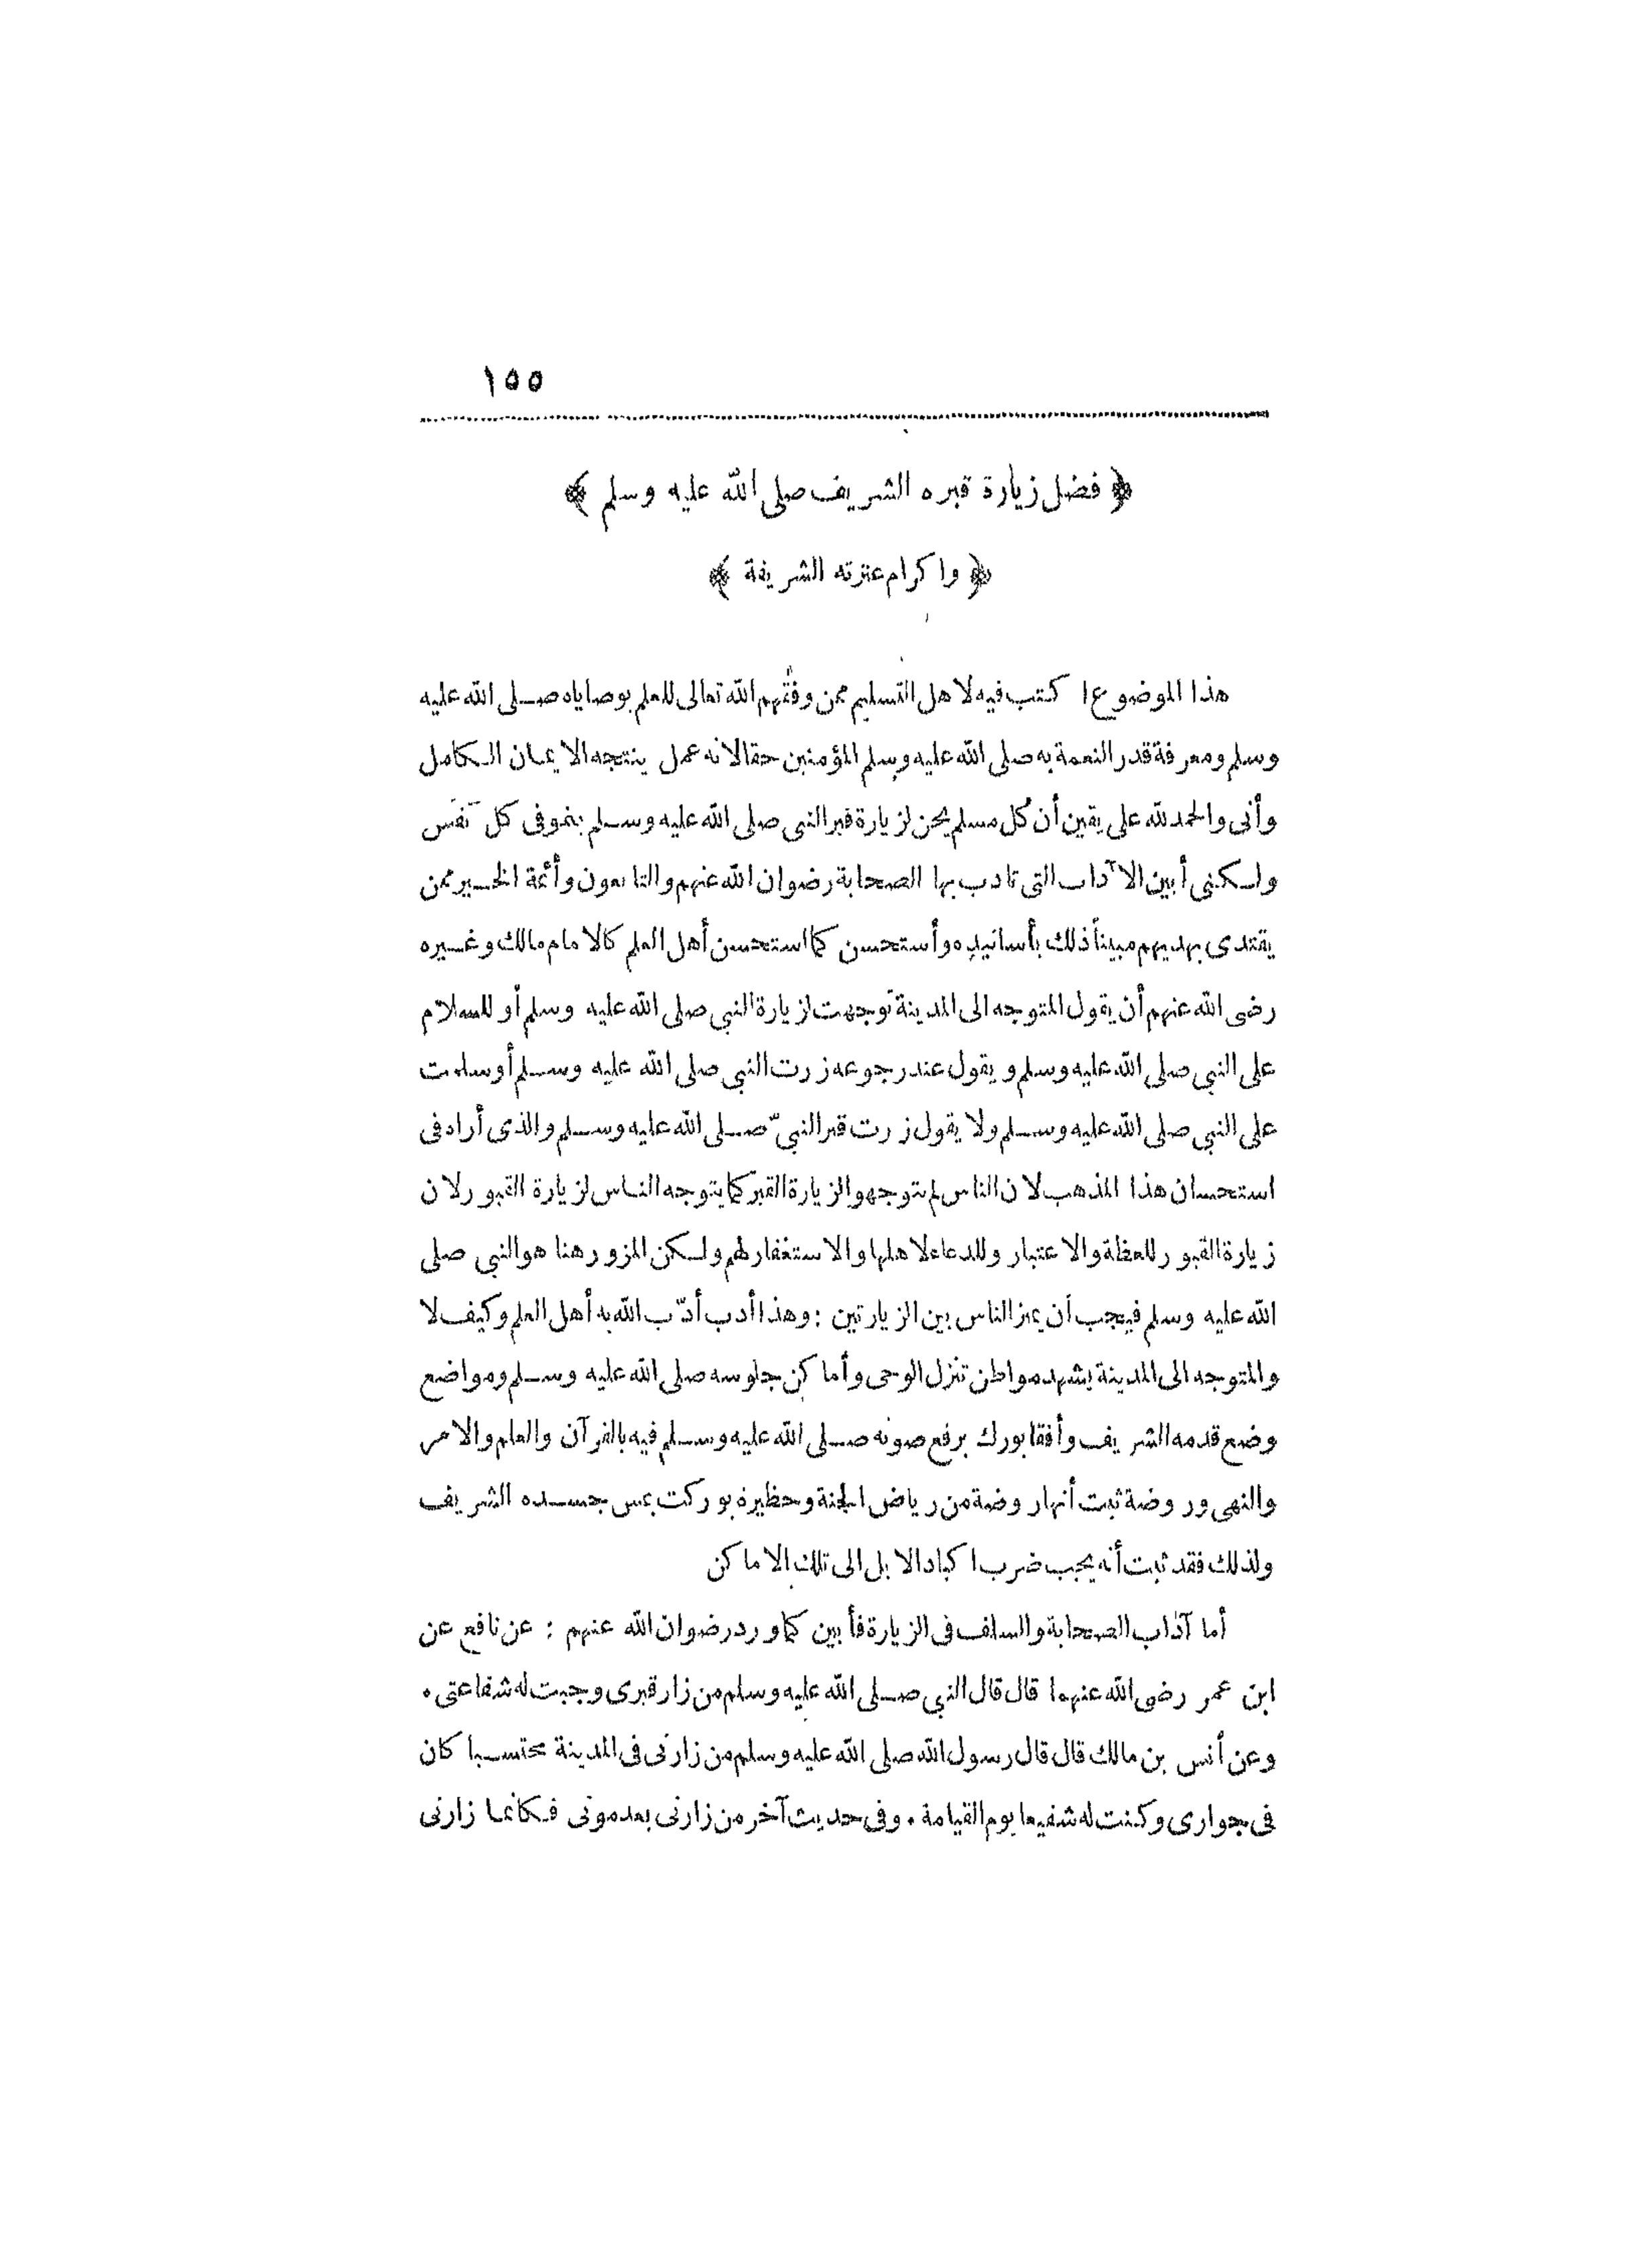 ١٥٥
﴿ فضل زيارة قبره الشريف صلى الله عليه وسلم ﴾
﴿ واكرام عترته الشريفة ﴾
هذا الموضوع اكتب فيه لاهل التسليم ممن وفقهم الله تعالى للعلم بوصاياه صلى الله عليه
وسلم ومعرفة قدر النعمة به صلى الله عليه وسلم المؤمنين حقا لانه عمل ينتجه الايمان الكامل
وأنى والحمد لله على يقين أن كل مسلم يحن لزيارة قبر النبى صلى الله عليه وسلم ينمو فى كل نفس
ولكننى أبين الآداب التى تادب بها الصحابة رضوان الله عنهم والتابعون وأئمة الخير ممن
يقتدى بهديهم مبيناً ذلك بأسانيده وأستحسن كما استحسن أهل العلم كالامام مالك وغيره
رضى الله عنهم أن يقول المتوجه الى المدينة توجهت لزيارة النبى صلى الله عليه وسلم أو للسلام
على النبى صلى الله عليه وسلم ويقول عند رجوعه زرت النبى صلى الله عليه وسلم أو سلمت
على النبى صلى الله عليه وسلم ولا يقول زرت قبر النبىّ صلى الله عليه وسلم والذى أراه فى
استحسان هذا المذهب لان الناس لم يتوجهوا لزيارة القبر كما يتوجه الناس لزيارة القبور لان
زيارة القبور للعظة والاعتبار وللدعاء لاهلها والاستغفار لهم ولكن المزور هنا هو النبى صلى
الله عليه وسلم فيجب أن يميز الناس بين الزيارتين : وهذا أدب أدّب الله به أهل العلم وكيف لا
والمتوجه الى المدينة يشهد مواطن تنزل الوحى وأماكن جلوسه صلى الله عليه وسلم ومواضع
وضع قدمه الشريف وأفقا بورك برفع صوته صلى الله عليه وسلم فيه بالقرآن والعلم والامر
والنهى وروضة ثبت أنها روضة من رياض الجنة وحظيرة بوركت بمس جسده الشريف
ولذلك فقد ثبت أنه يجب ضرب اكباد الابل الى تلك الاماكن
أما آداب الصحابة والسلف فى الزيارة فأبين كما ورد رضوان الله عنهم : عن نافع عن
ابن عمر رضى الله عنهما قال قال النبى صلى الله عليه وسلم من زار قبرى وجبت له شفاعتى .
وعن أنس بن مالك قال قال رسول الله صلى الله عليه وسلم من زارنى فى المدينة محتسبا كان
فى جوارى وكنت له شفيعا يوم القيامة . وفى حديث آخر من زارنى بعد موتى فكانما زارنى